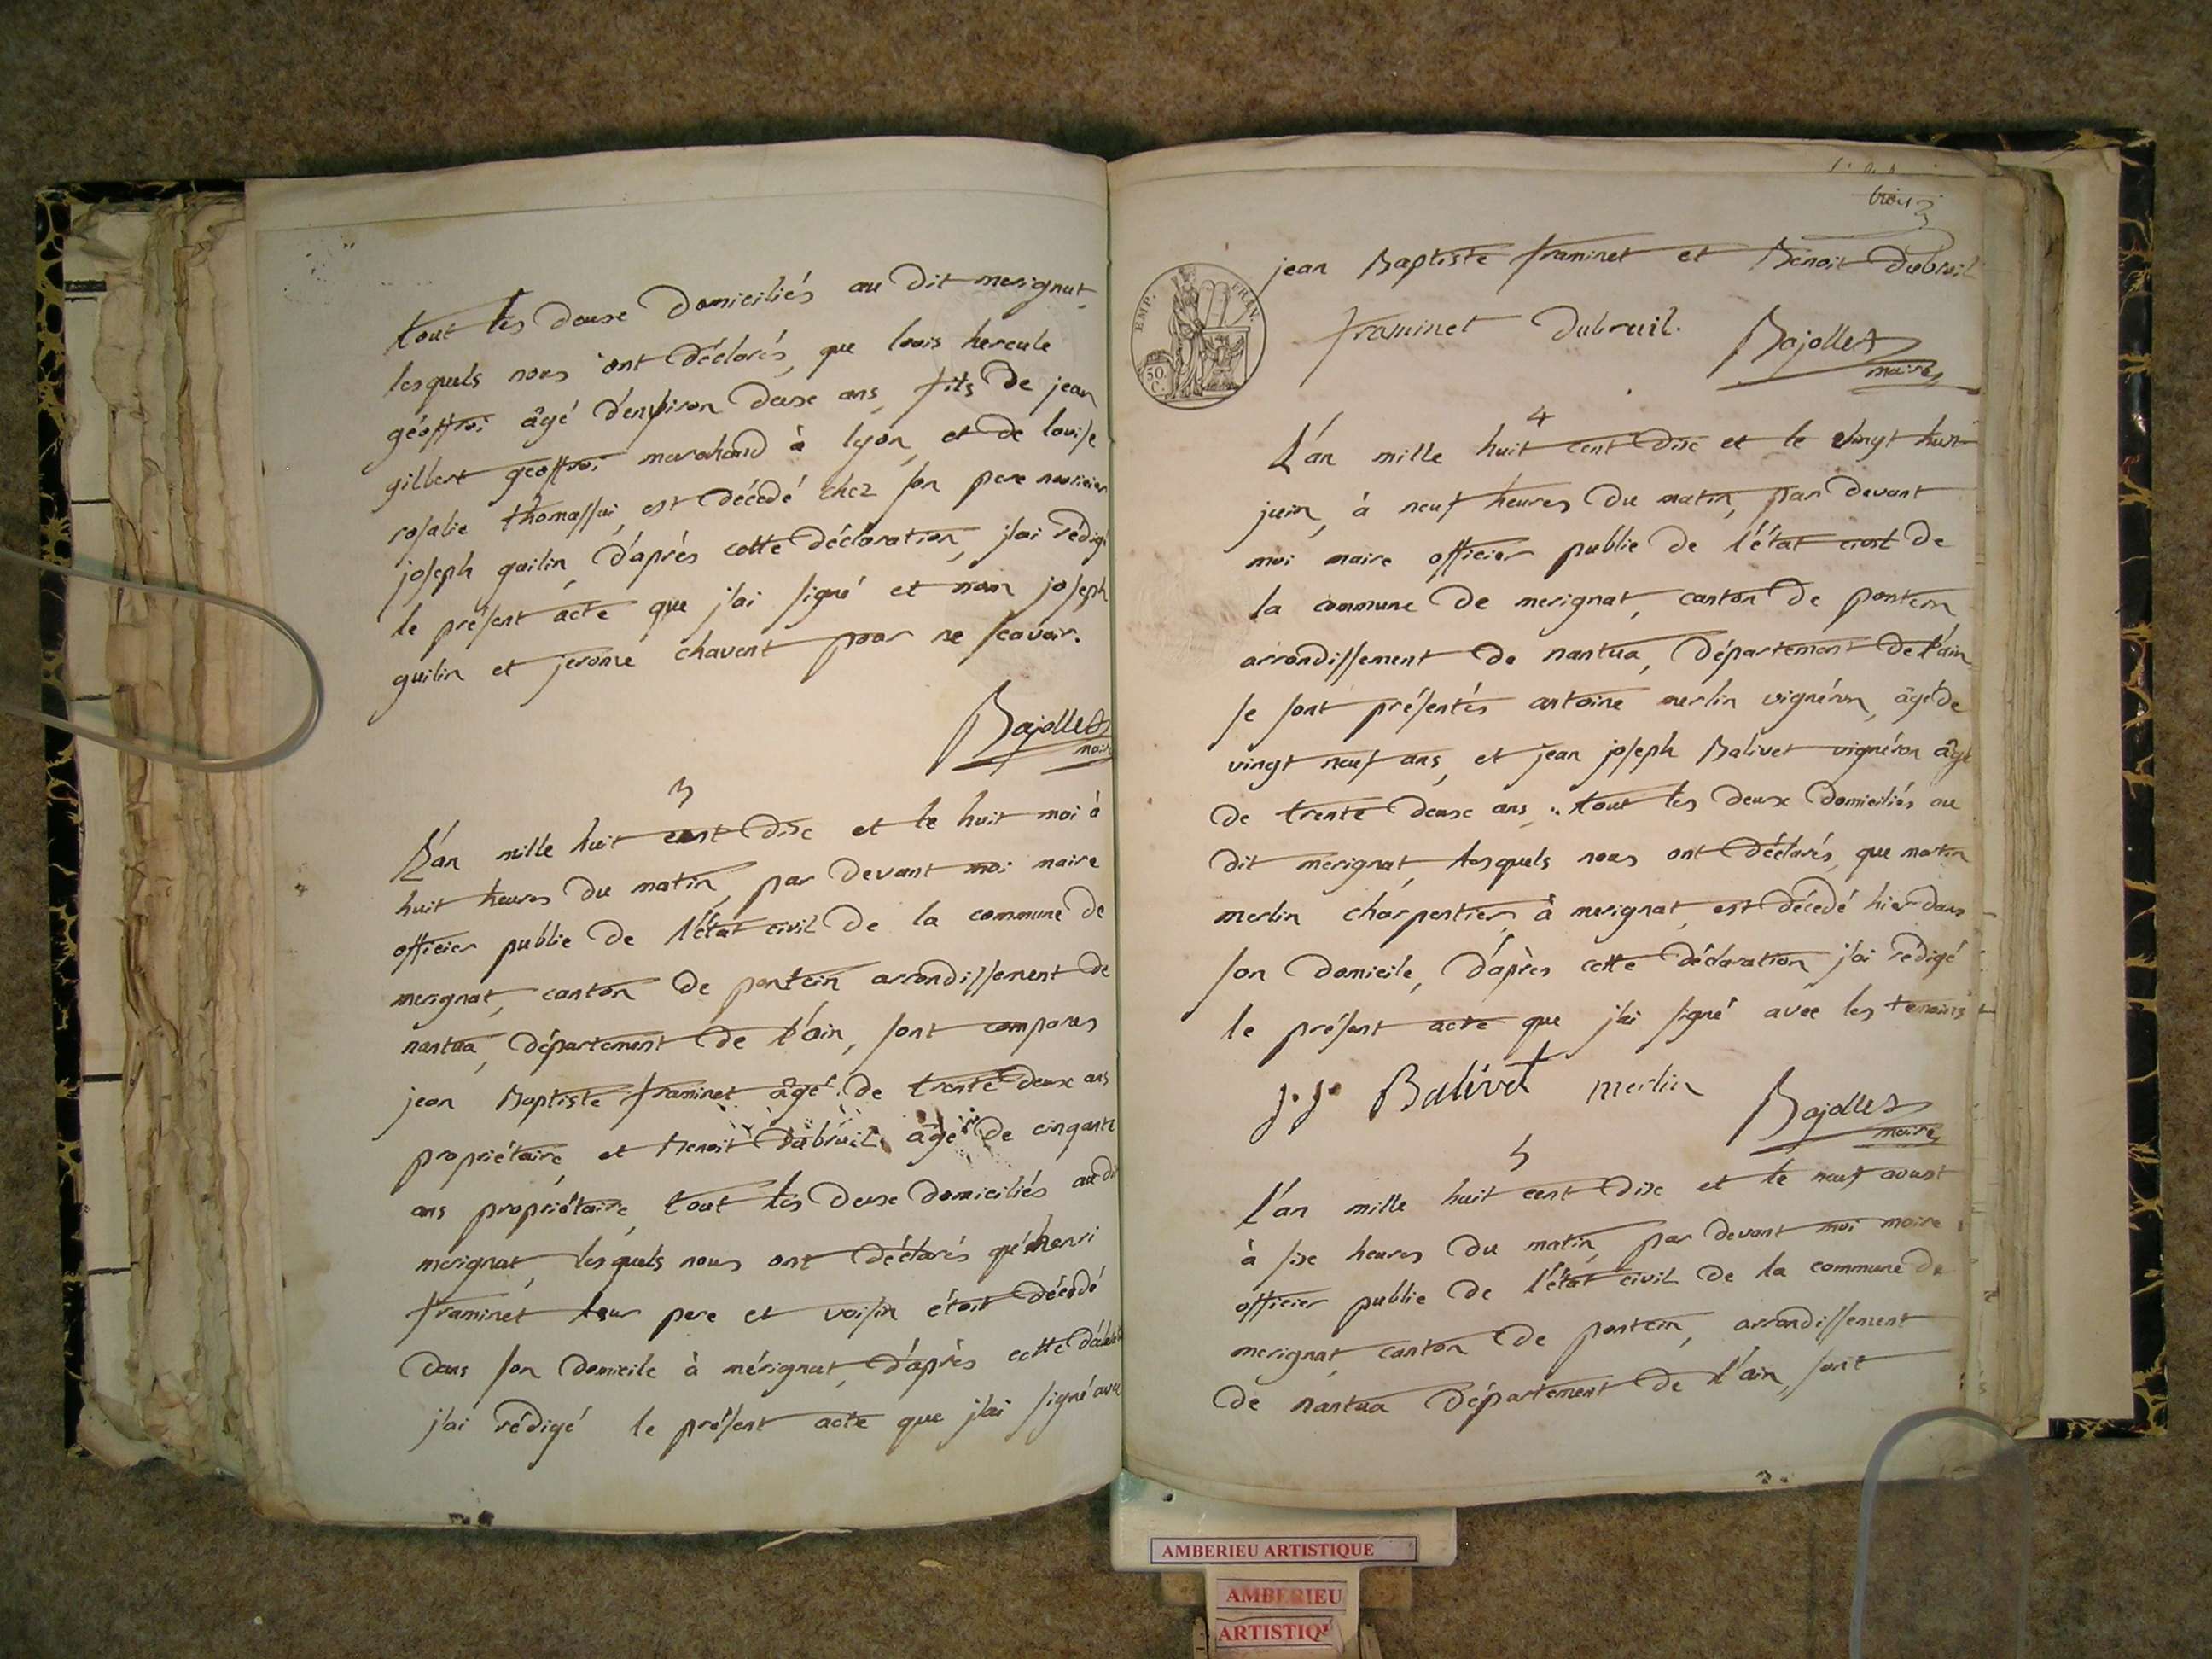 tout les deuxe domiciliés au dit merignat,
lesquels nous ont déclarés, que louis hercule
géoffroi âgé d'environ deux ans, fils de jean
gilbert geoffroi marchand à lyon, et de louise
rosalie thomassai, est décedé chez son pere nouricier
joseph guilin, d'après cette déclaration, j'ai rédigé
le présent acte que j'ai signé et non joseph
guilin et jerome chavent pour ne scavoir.
Bajollet
maire
3
L'an mille huit cent dix et le huit mai à
huit heures du matin, par devant moi maire
officier public de l'état civil de la commune de
merignat, canton de poncin arrondissement de
nantua, département de l'ain, sont comparus
jean Baptiste framinet âgé de trente deux ans
propriétaire, et Benoit dubruil âgé de cinquante
ans propriétaire, tout les deux domiciliés au dit
merignat, lesquels nous ont déclarés qu'henri
framinet leur pere et voisin étoit décedé
dans son domicile à mérignat, d'après cette
j'ai rédigé le présent acte que j'ai signé avec
trois
jean Baptiste framinet et Benoit dubruil
EMP. FRAN.
50.
C.
framinet dubruil. Bajollet
maire
4
L'an mille huit cent dix et le vingt huit
juin, à neuf heures du matin, par devant
moi maire officier public de l'état civil de
la commune de merignat, canton de poncin
arrondissement de nantua, département de l'ain
se sont présentés antoine merlin vignéron, âgé de
vingt neuf ans, et jean joseph Balivet vignéron âgé
de trente deux ans, tout les deux domiciliés au
dit merignat, lesquels nous ont déclarés, que martin
merlin charpentier, à merignat, est décedé hier dans
son domicile, d'après cette déclaration j'ai rédigé
le présent acte que j'ai signé avec les temoins
j. j. Balivet merlin Bajollet
maire
5
L'an mille huit cent dix et le neuf aoust
à six heures du matin, par devant moi maire
officier public de l'état civil de la commune de
merignat canton de poncin, arrondissement
de nantua département de l'ain, sont
AMBERIEU ARTISTIQUE
AMBERIEU
ARTISTIQU